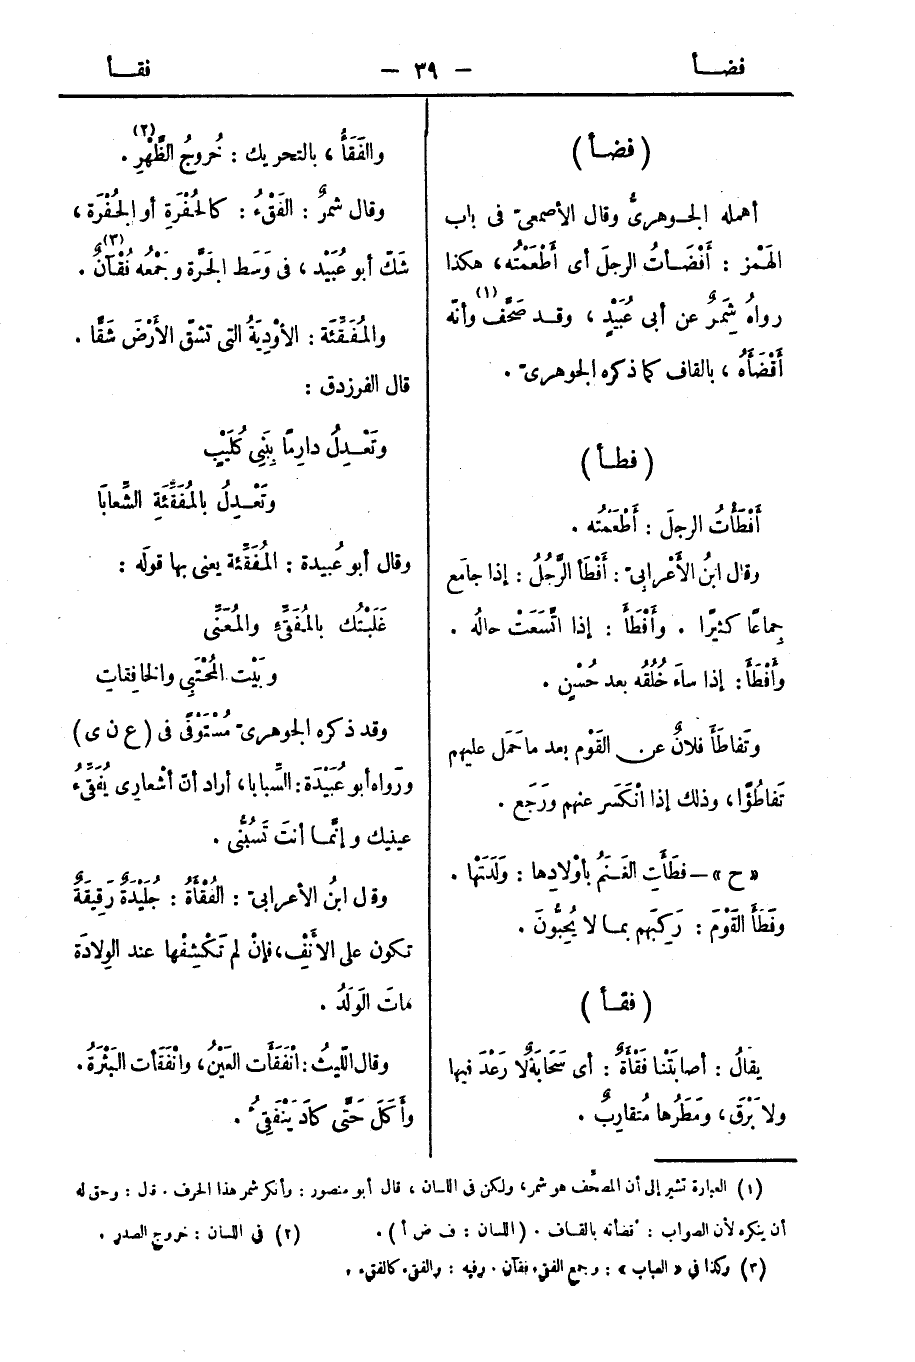 فضأ — ٣٩ — فقأ
( فضأ )
أهمله الجوهرىُّ وقال الأصمعىّ فى باب
الهَمْز : أَفْضَأتُ الرجلَ أى أَطْعَمْتُه، هكذا
رواهُ شَمِرٌ عن أبى عُبَيْدٍ ، وقد صَحَّفَ (١) وأنَّه
أَقْضَأَهُ ، بالقاف كما ذكره الجوهرىّ .
( فطأ )
أَفْطَأْتُ الرجلَ : أَطْعَمْتُه .
وقال ابنُ الأَعْرابىّ : أَفْطَأَ الرَّجُلُ : إذا جامَع
جِماعًا كثيرًا . وأَفْطَأَ : إذا اتَّسَعَتْ حالُه .
وأَفْطَأَ: إذا ساءَ خُلُقُه بعد حُسْنٍ .
وتَفاطَأَ فلانٌ عن القَوْم بعد ما حَمَل عليهم
تَفاطُؤًا، وذلك إذا انْكَسَر عنهم ورَجَع .
« ح » — فطَأَتِ الغَنَمُ بأَوْلادِها : وَلَدَتْها .
وفَطَأَ القَوْمَ : رَكِبَهم بما لا يُحِبُّونَ .
( فقأ )
يقالُ : أصابَتْنا فَقْأَةٌ : أى سَحَابَةٌ لا رَعْدَ فيها
ولا بَرْق، ومَطَرُها مُتقارِبٌ .
والفَقَأُ ، بالتحريك : خُروجُ الظَّهْرِ (٢) .
وقال شمرٌ : الفَقْءُ : كالحُفْرَةِ أو الجُفْرَة ،
شَكّ أبو عُبَيْد ، فى وَسَط الحَرَّة وجَمْعُه فُقْآنٌ (٣) .
والمُفَقِّئَة : الأوْدِيَةُ التى تشقّ الأَرْضَ شَقًّا .
قال الفرزدق :
وتَعْدِلُ دارِمًا بِبَنِى كُلَيْبٍ
وتَعْدِلُ بالمُفَقِّئَةِ الشِّعابَا
وقال أبو عُبيدة : المُفَقِّئة يعنى بها قولَه :
غَلَبْتُك بالمُفَقِّئِ والمُعَنَّى
وبَيْت المُحْتَبِى والخافِقات
وقد ذكره الجوهرىّ مُسْتَوْفًى فى ( ع ن ى )
ورَواه أبو عُبَيْدَة: السِّبابا، أراد أنّ أشْعارِى يُفَقِّىءُ
عينيك وإنَّما أنتَ تَسُبُّنى .
وقال ابنُ الأعرابىّ : الفُقْأَةُ : جُلَيْدَةٌ رَقِيقَةٌ
تكون على الأَنْفِ، فإنْ لم تَكْشِفْها عند الوِلادَة
ماتَ الوَلَدُ .
وقال اللّيثُ: انْفَقَأَت العَيْنُ، وانْفَقَأت البَثْرَةُ.
وأَكَلَ حَتَّى كادَ يَنْفَقِىُّ .
(١) العبارة تشير إلى أن المصحِّف هو شمر، ولكن فى اللسان ، قال أبو منصور : وأنكر شمر هذا الحرف . قال : وحق له
أن ينكره لأن الصواب : أقضأته بالقاف . ( اللسان : ف ض أ ) . (٢) فى اللسان : خروج الصدر .
(٣) وكذا فى « العباب » : وجمع الفقء فقآن . وفيه : والفقء كالفقء .